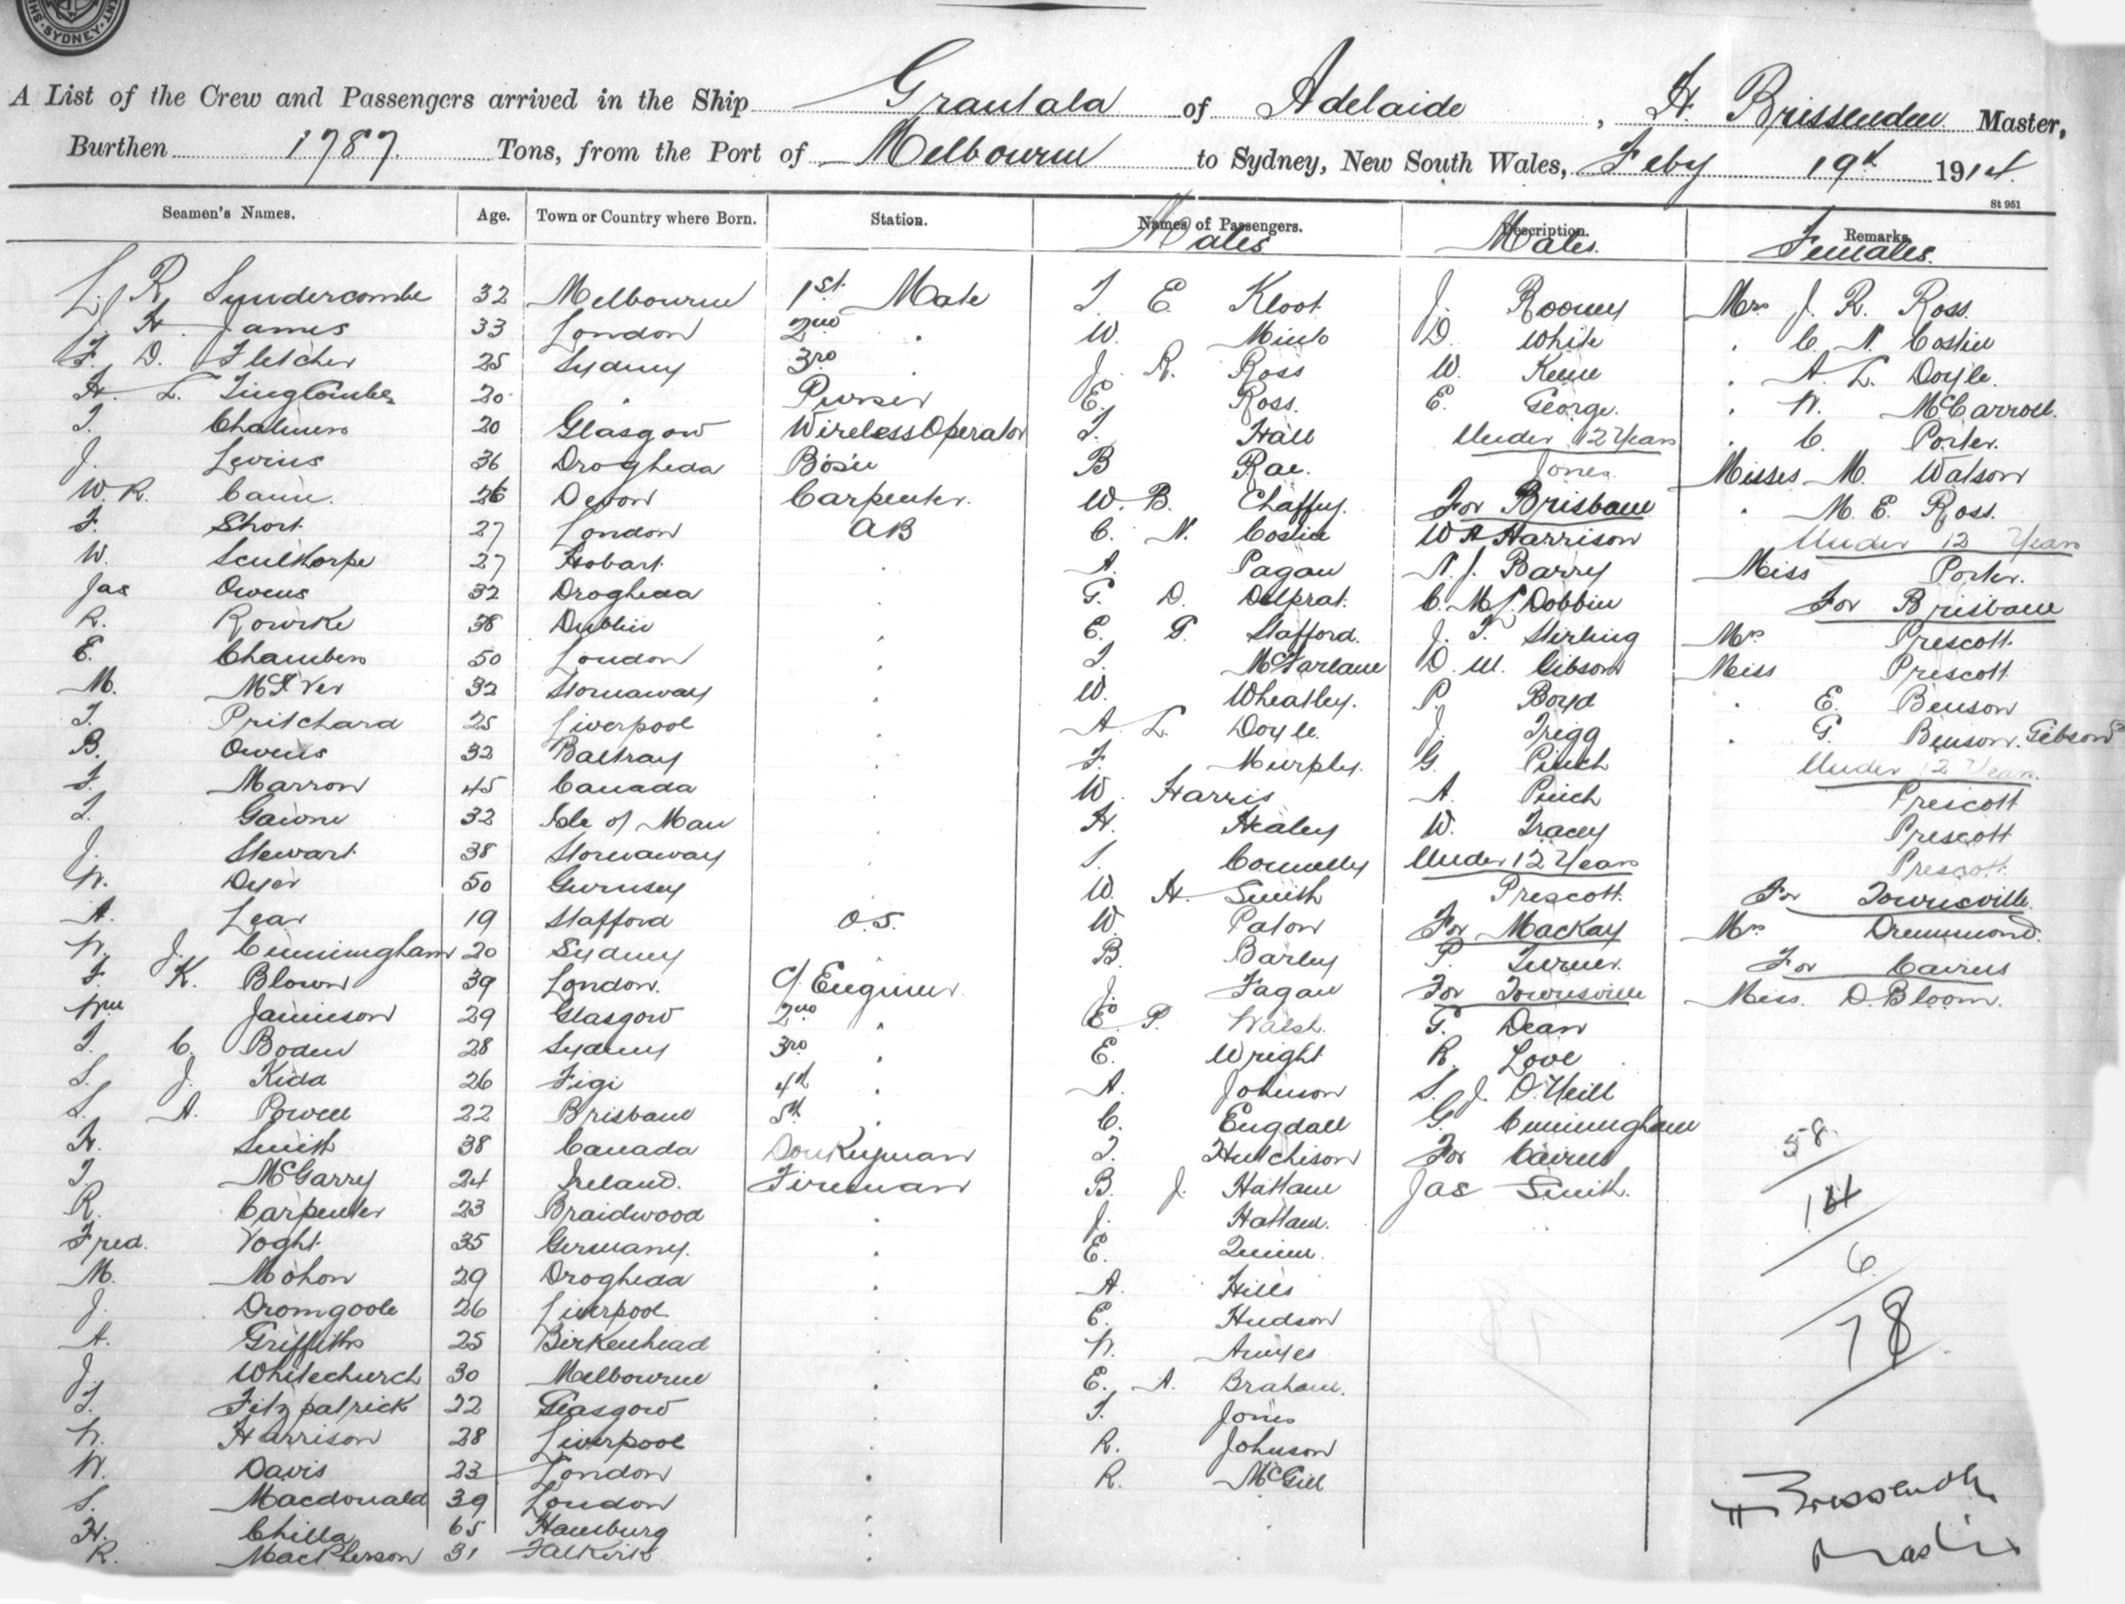 SYDNEY
A List of the Crew and Passengers arrived in the Ship Grantala of Adelaide, H. Brissenden Master,
Burthen 1787. Tons, from the Port of Melbourne to Sydney, New South Wales, Feby 19th 1914.
St 951
Seamen's Names. Age. Town or Country where Born. Station. Names of Passengers. Description. Remarks.
Males Males. Females.
L. R. Syndercombe 32 Melbourne 1st Mate T E Kloot J. Rooney Mrs J. R. Ross.
J. H. James 33 London 2nd . W. Minto D. White . C. N. Costin
F. D. Fletcher 25 Sydney 3rd . J. R. Ross W. Keene . A. L. Doyle.
H. L. Tinglcombe 20 . Purser E. Ross. E. George. . W. McCarroll.
T. Chalmers 20 Glasgow Wireless Operator T. Hall Under 12 Years . C. Porter.
J. Levins 36 Drogheda Bosin B Rae. Jones. Misses M. Watson
W. R. Cann. 26 Devon Carpenter. W. B. Chaffey. For Brisbane . M. E. Ross.
F. Short 27 London AB C. N. Costin W A Harrison Under 12 Years
W. Sculthorpe 27 Hobart . A. Pagan N. J. Barry Miss Porter.
Jas Owens 32 Drogheda . G. D. Delprat. C. M. Dobbin For Brisbane
R. Rowrke 38 Dublin . E. G. Stafford. J. T. Sterling Mrs Prescott
E. Chambers 50 London . T. McFarlane D. M. Gibson Miss Prescott
M. McIver 32 Stornaway . W. Wheatley. P. Boyd . E. Benson
T. Pritchard 25 Liverpool . A L. Doyle. J. Trigg . G. Benson. Gibson
B. Owens 32 Baltray . F. Murphy. G. Pinch Under 12 Years
F. Marron 45 Canada . W. Harris A. Pinch Prescott
T. Gawne 32 Isle of Man . H. Healey W. Tracey Prescott
J. Stewart 38 Stornaway . S. Connelly Under 12 Years Prescott
W. Dyer 50 Gurnsey W. H. Smith Prescott. For Townsville.
A. Lear 19 Stafford O.S. W. Paton For Mackay Mrs Drummond.
W. J. Cunningham 20 Sydney . B. Barley P. Turner. For Cairns
F. K. Blown 39 London. C/ Engineer J. Fagan For Townsville Miss. D. Bloom.
Wm Jamieson 29 Glasgow 2nd . E. P. Walsh. G. Dean
T. C. Boden 28 Sydney 3rd . E. Wright R. Love
S. J. Kida 26 Figi 4th . A. Johnson S. J. O'Neill
S. A. Powell 22 Brisbane 5th . C. Engdall G. Cunningham 58
H. Smith 38 Canada Donkeyman T. Hutchison For Cairns
T. McGarry 24 Ireland. Fireman B. J. Hallam Jas Smith. 14
R. Carpenter 23 Braidwood . J. Hallam.
Fred. Voght 35 Germany. . E. Quinn. 6
M. Mohon 29 Drogheda . A. Hills
J. Dromgoole 26 Liverpool . E. Hudson 78
A. Griffiths 25 Birkenhead . W.
J. Whitechurch 30 Melbourne . E. A. Braham.
T. Fitzpatrick 22 Glasgow . T. Jones
W. Harrison 28 Liverpool . R. Johnson
W. Davis 23 London . R. McGill
S. Macdonald 39 London
H. Chilla 65 Hamburg . H Brissenden
R. MacPherson 31 Falkirk . Master